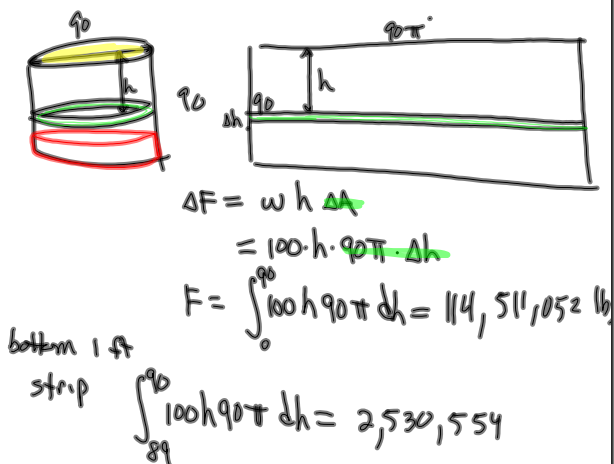 90
h
90
90π
h
90
Δh
ΔF = w h ΔA
= 100·h·90π·Δh
F = ∫₀⁹⁰ 100h90π dh = 114,511,052 lb
bottom 1 ft
strip
∫₈₉⁹⁰ 100h90π dh = 2,530,554